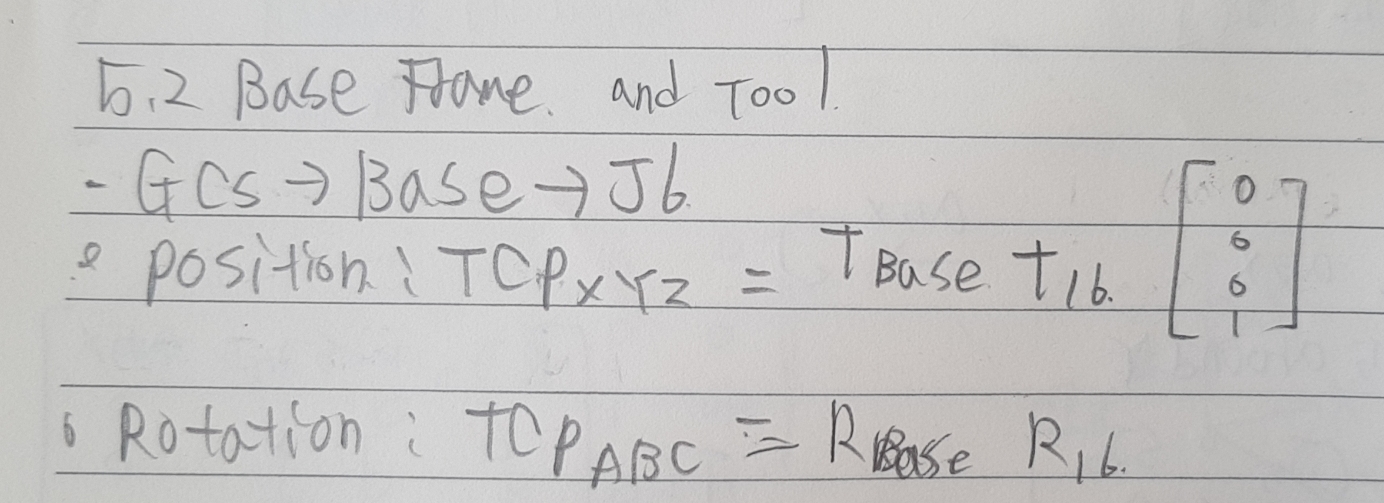 5.2 Base Frame. and Tool.
- GCS → Base → J6.
• position : TCP_XYZ = T_Base T_16. [0 0 0 1]
• Rotation : TCP_ABC = R_Base R_16.